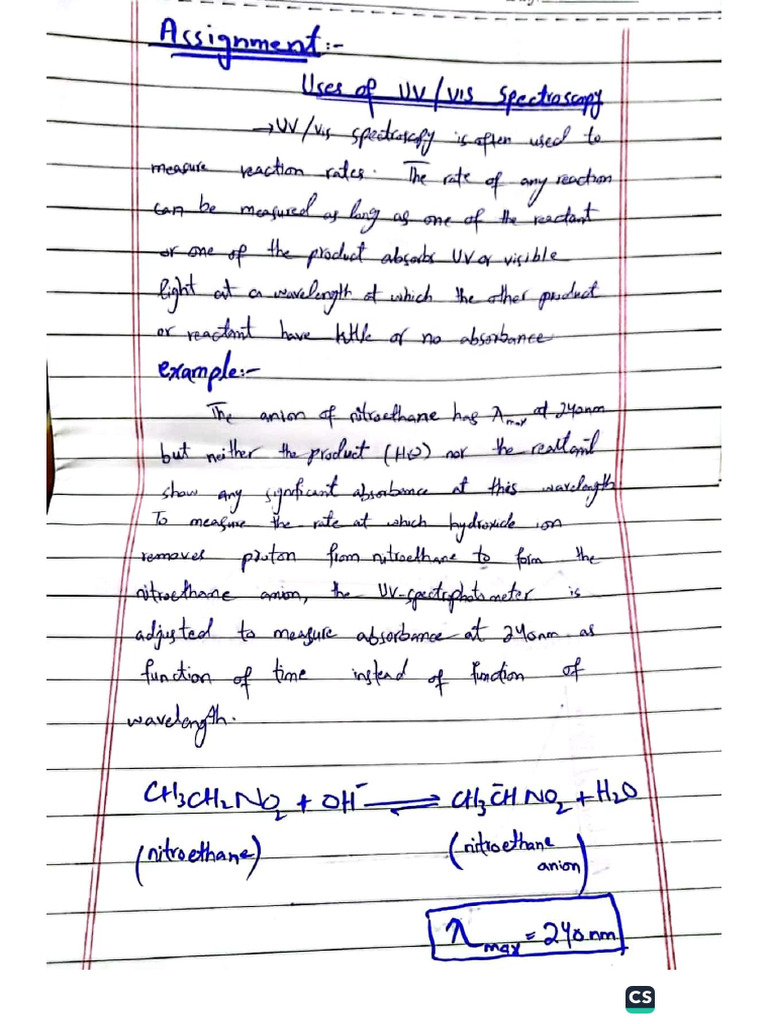 Assignment:-
Uses of UV/vis spectroscopy
→UV/vis spectroscopy is often used to
measure reaction rates. The rate of any reaction
can be measured as long as one of the reactant
or one of the product absorbs UV or visible
light at a wavelength at which the other product
or reactant have little or no absorbance
example:-
The anion of nitroethane has λmax at 240nm
but neither the product (H2O) nor the reactant
show any significant absorbance at this wavelength
To measure the rate at which hydroxide ion
removes proton from nitroethane to form the
nitroethane anion, the UV-spectrophotometer is
adjusted to measure absorbance at 240nm as
function of time instead of function of
wavelength.
CH3CH2NO2 + OH⁻ ⇌ CH3C̄HNO2 + H2O
(nitroethane) (nitroethane
anion)
λmax = 240nm
CS